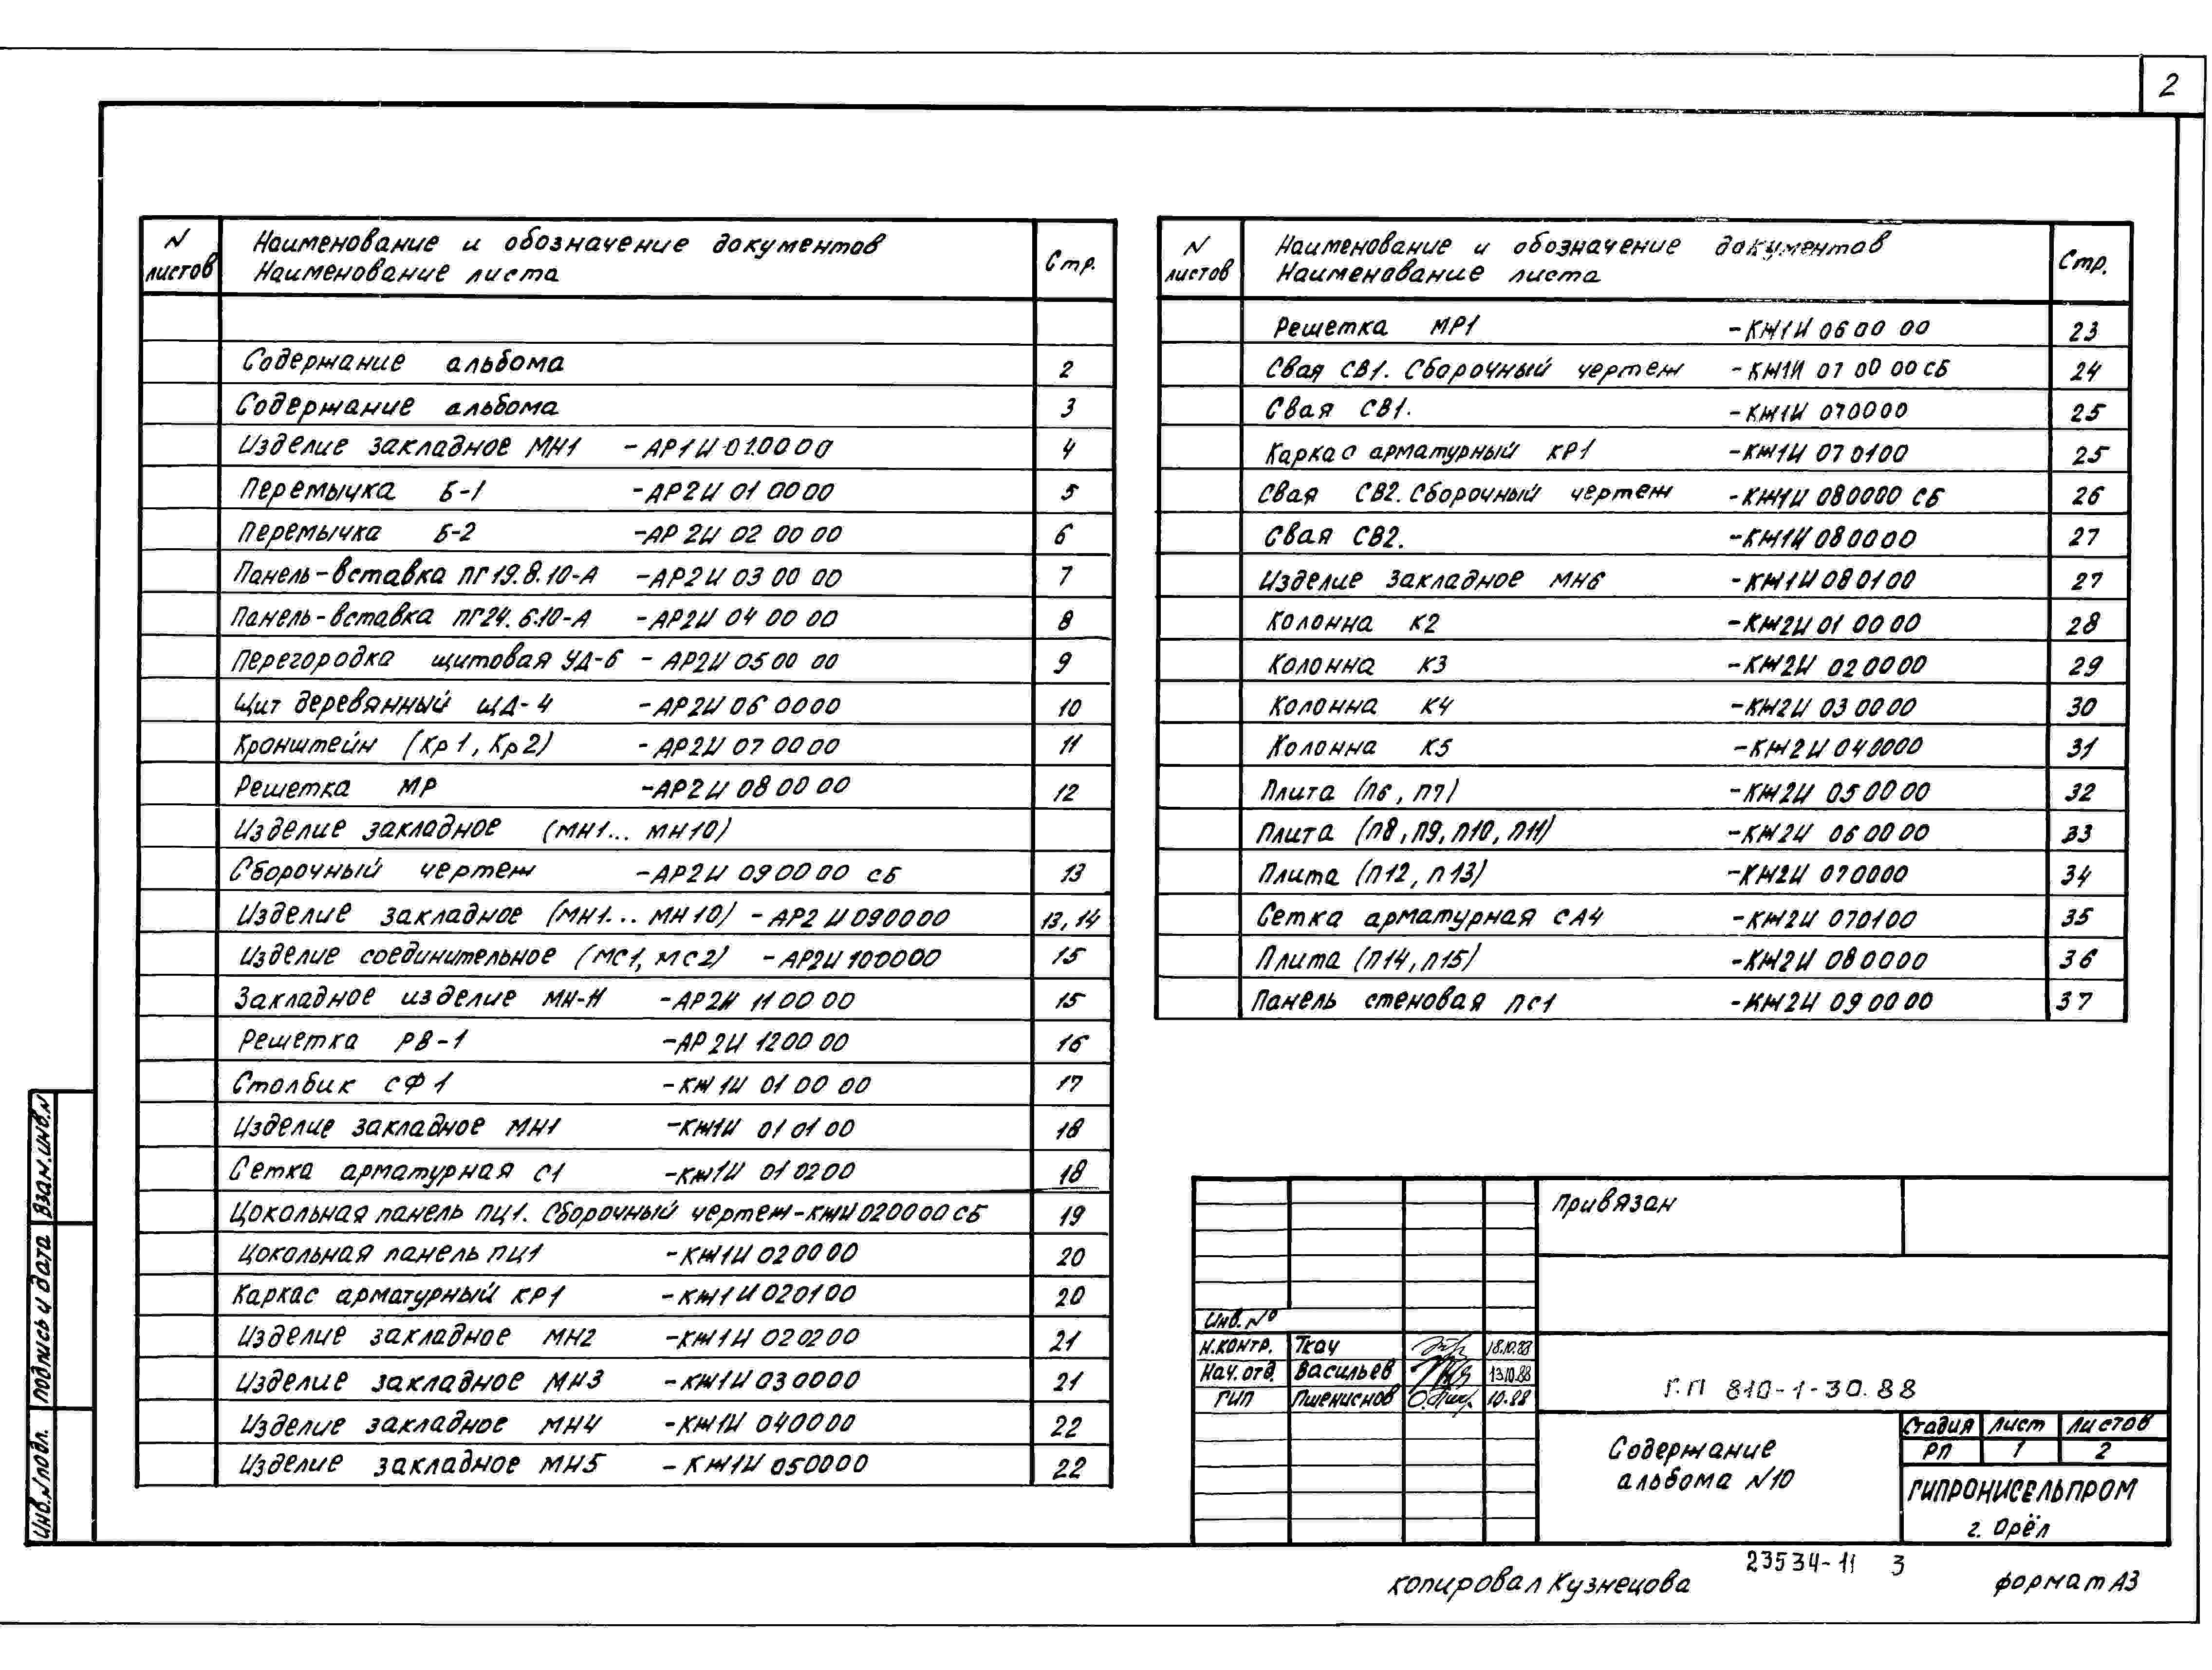 2
N листов
Наименование и обозначение документов
Наименование листа
Стр.
Содержание альбома 2
Содержание альбома 3
Изделие закладное МН1 -АР1И 010000 4
Перемычка Б-1 -АР2И 01 0000 5
Перемычка Б-2 -АР2И 02 00 00 6
Панель-вставка ПГ19.8.10-А -АР2И 03 00 00 7
Панель-вставка ПГ24.6.10-А -АР2И 04 00 00 8
Перегородка щитовая УД-6 -АР2И 0500 00 9
Щит деревянный ЩД-4 -АР2И 06 0000 10
Кронштейн (Кр1, Кр2) -АР2И 07 00 00 11
Решетка МР -АР2И 08 00 00 12
Изделие закладное (МН1... МН10)
Сборочный чертеж -АР2И 09 00 00 СБ 13
Изделие закладное (МН1... МН10) -АР2И 090000 13, 14
Изделие соединительное (МС1, МС2) -АР2И 100000 15
Закладное изделие МН-Н -АР2И 11 00 00 15
Решетка РВ-1 -АР2И 1200 00 16
Столбик СФ1 -КЖ1И 01 00 00 17
Изделие закладное МН1 -КЖ1И 01 01 00 18
Сетка арматурная С1 -КЖ1И 01 0200 18
Цокольная панель ПЦ1. Сборочный чертеж-КЖ1И 020000 СБ 19
Цокольная панель ПЦ1 -КЖ1И 020000 20
Каркас арматурный КР1 -КЖ1И 020100 20
Изделие закладное МН2 -КЖ1И 020200 21
Изделие закладное МН3 -КЖ1И 030000 21
Изделие закладное МН4 -КЖ1И 040000 22
Изделие закладное МН5 -КЖ1И 050000 22
N листов
Наименование и обозначение документов
Наименование листа
Стр.
Решетка МР1 -КЖ1И 0600 00 23
Свая СВ1. Сборочный чертеж -КЖ1И 07 00 00 СБ 24
Свая СВ1. -КЖ1И 070000 25
Каркас арматурный КР1 -КЖ1И 07 0100 25
Свая СВ2. Сборочный чертеж -КЖ1И 080000 СБ 26
Свая СВ2. -КЖ1И 080000 27
Изделие закладное МН6 -КЖ1И 080100 27
Колонна К2 -КЖ2И 01 00 00 28
Колонна К3 -КЖ2И 02 0000 29
Колонна К4 -КЖ2И 03 0000 30
Колонна К5 -КЖ2И 040000 31
Плита (П6, П7) -КЖ2И 05 00 00 32
Плита (П8, П9, П10, П11) -КЖ2И 06 00 00 33
Плита (П12, П13) -КЖ2И 070000 34
Сетка арматурная СА4 -КЖ2И 070100 35
Плита (П14, П15) -КЖ2И 08 0000 36
Панель стеновая ПС1 -КЖ2И 09 00 00 37
Взам.инв.N
Подпись и дата
Инв.N подл.
Привязан
Инв.Nº
Н.контр. Ткач 18.10.88
Нач.отд. Васильев 13.10.88
ГИП Пшениснов 10.88
Т.П 810-1-30.88
Содержание
альбома N10
Стадия Лист Листов
РП 1 2
ГИПРОНИСЕЛЬПРОМ
г. Орёл
23534-11 3
копировал Кузнецова
формат А3